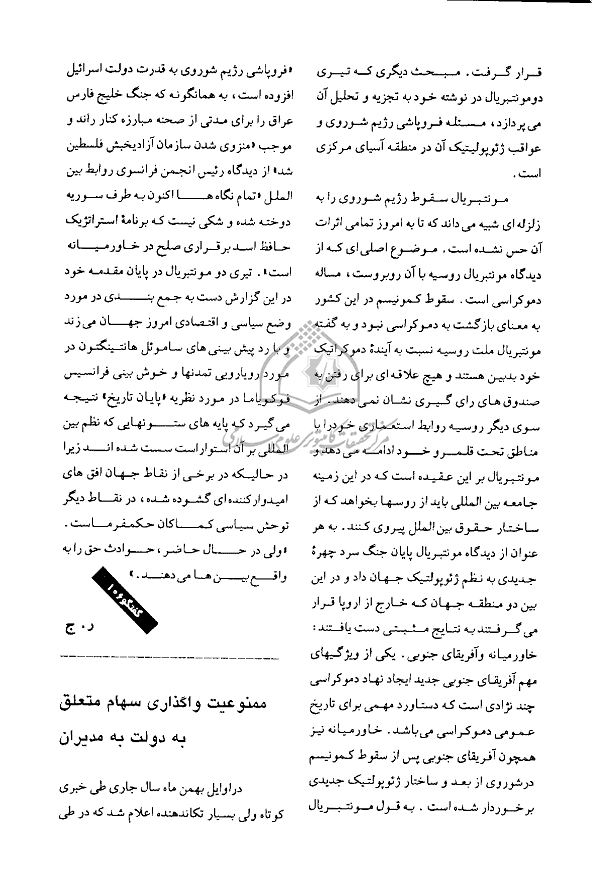 قرار گرفت. مبحث دیگری که تیری
دومونتبریال در نوشته خود به تجزیه و تحلیل آن
می‌پردازد، مسئله فروپاشی رژیم شوروی و
عواقب ژئوپولیتیک آن در منطقه آسیای مرکزی
است.
مونتبریال سقوط رژیم شوروی را به
زلزله ای شبیه می‌داند که تا به امروز تمامی اثرات
آن حس نشده است. موضوع اصلی‌ای که از
دیدگاه مونتبریال روسیه با آن روبروست، مساله
دموکراسی است. سقوط کمونیسم در این کشور
به معنای بازگشت به دموکراسی نبود و به گفته
مونتبریال ملت روسیه نسبت به آیندۀ دموکراتیک
خود بدبین هستند و هیچ علاقه ای برای رفتن به
صندوق های رای گیری نشان نمی‌دهند. از
سوی دیگر روسیه روابط استعماری خود را با
مناطق تحت قلمرو خود ادامه می‌دهد و
مونتبریال بر این عقیده است که در این زمینه
جامعه بین المللی باید از روسها بخواهد که از
ساختار حقوق بین الملل پیروی کنند. به هر
عنوان از دیدگاه مونتبریال پایان جنگ سرد چهرۀ
جدیدی به نظم ژئوپولتیک جهان داد و در این
بین دو منطقه جهان که خارج از اروپا قرار
می‌گرفتند به نتایج مثبتی دست یافتند:
خاورمیانه وآفریقای جنوبی. یکی از ویژگیهای
مهم آفریقای جنوبی جدید ایجاد نهاد دموکراسی
چند نژادی است که دستاورد مهمی برای تاریخ
عمومی دموکراسی می‌باشد. خاورمیانه نیز
همچون آفریقای جنوبی پس از سقوط کمونیسم
درشوروی از بعد و ساختار ژئوپولتیک جدیدی
برخوردار شده است. به قول مونتبریال
«فروپاشی رژیم شوروی به قدرت دولت اسرائیل
افزوده است، به همانگونه که جنگ خلیج فارس
عراق را برای مدتی از صحنه مبارزه کنار راند و
موجب «منزوی شدن سازمان آزادیبخش فلسطین
شد» از دیدگاه رئیس انجمن فرانسوی روابط بین
الملل «تمام نگاه هـا اکنون به طرف سوریه
دوخته شده و شکی نیست که برنامۀ استراتژیک
حافظ اسد برقراری صلح در خاورمیانه
است». تیری دو مونتبریال در پایان مقدمه خود
در این گزارش دست به جمع بنـدی در مورد
وضع سیاسی و اقتصادی امروز جهان می‌زند
و با رد پیش بینی های ساموئل هانتینگتون در
مورد رویارویی تمدنها و خوش بینی فرانسیس
فوکویاما در مورد نظریه «پایان تاریخ» نتیجه
می‌گیرد که پایه های ستونهایی که نظم بین
المللی بر آن استوار است سست شده اند زیرا
در حالیکه در برخی از نقاط جهان افق های
امیدوارکننده ای گشوده شده، در نقاط دیگر
توحش سیاسی کماکان حکمفرماست.
«ولی در حال حاضر، حوادث حق را به
واقع بین ها می‌دهند.»
گفتگو ۱۰۶
ر. ج
ممنوعیت واگذاری سهام متعلق
به دولت به مدیران
دراوایل بهمن ماه سال جاری طی خبری
کوتاه ولی بسیار تکاندهنده اعلام شد که در طی